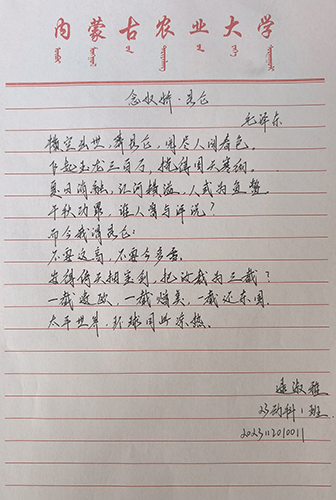 内蒙古农业大学
念奴娇·昆仑
毛泽东
横空出世,莽昆仑,阅尽人间春色。
飞起玉龙三百万,搅得周天寒彻。
夏日消融,江河横溢,人或为鱼鳖。
千秋功罪,谁人曾与评说?
而今我谓昆仑:
不要这高,不要这多雪。
安得倚天抽宝剑,把汝裁为三截?
一截遗欧,一截赠美,一截还东国。
太平世界,环球同此凉热。
淑雅
23动科1班